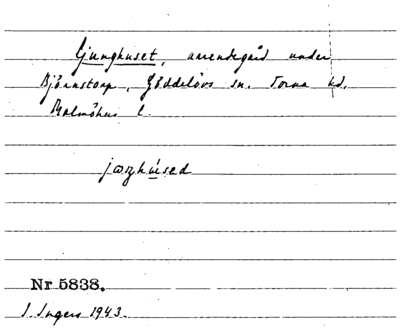 Ljunghuset, arrendegård under
Björnstorp, Göddelövs sn. Torna hd.
Malmöhus l.
Nr 5838.
I. Ingers 1943.